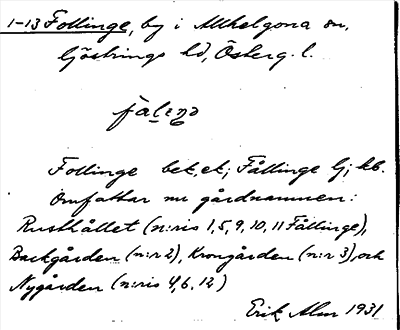 1-13 Follinge, by i Allhelgona sn,
Göstrings hd, Österg. l.
Follinge bet. ek; Fållinge lj; kb.
Omfattar nu gårdnamnen:
Rusthållet (n:ris 1, 5, 9, 10, 11 Fållinge),
Backgården (n:r 2), Krongården (n:r 3), och
Nygården (n:ris 4, 6, 12)
Erik Alm 1931